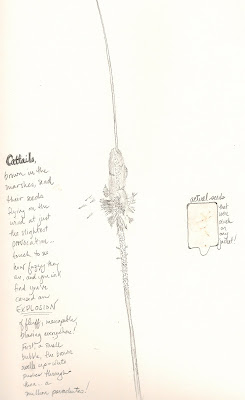 Cattails,
brown in the
marshes, and
their seeds
flying on the
wind at just
the slightest
provocation...
touch to see
how fuzzy they
are, and you will
find you've
caused an
EXPLOSION
of fluffy,
blowing everywhere!
First a small
bubble, the brown
wells up - white
pushes through
then... a
million parachutes!
actual seeds
that were
stuck
on
my
jacket!